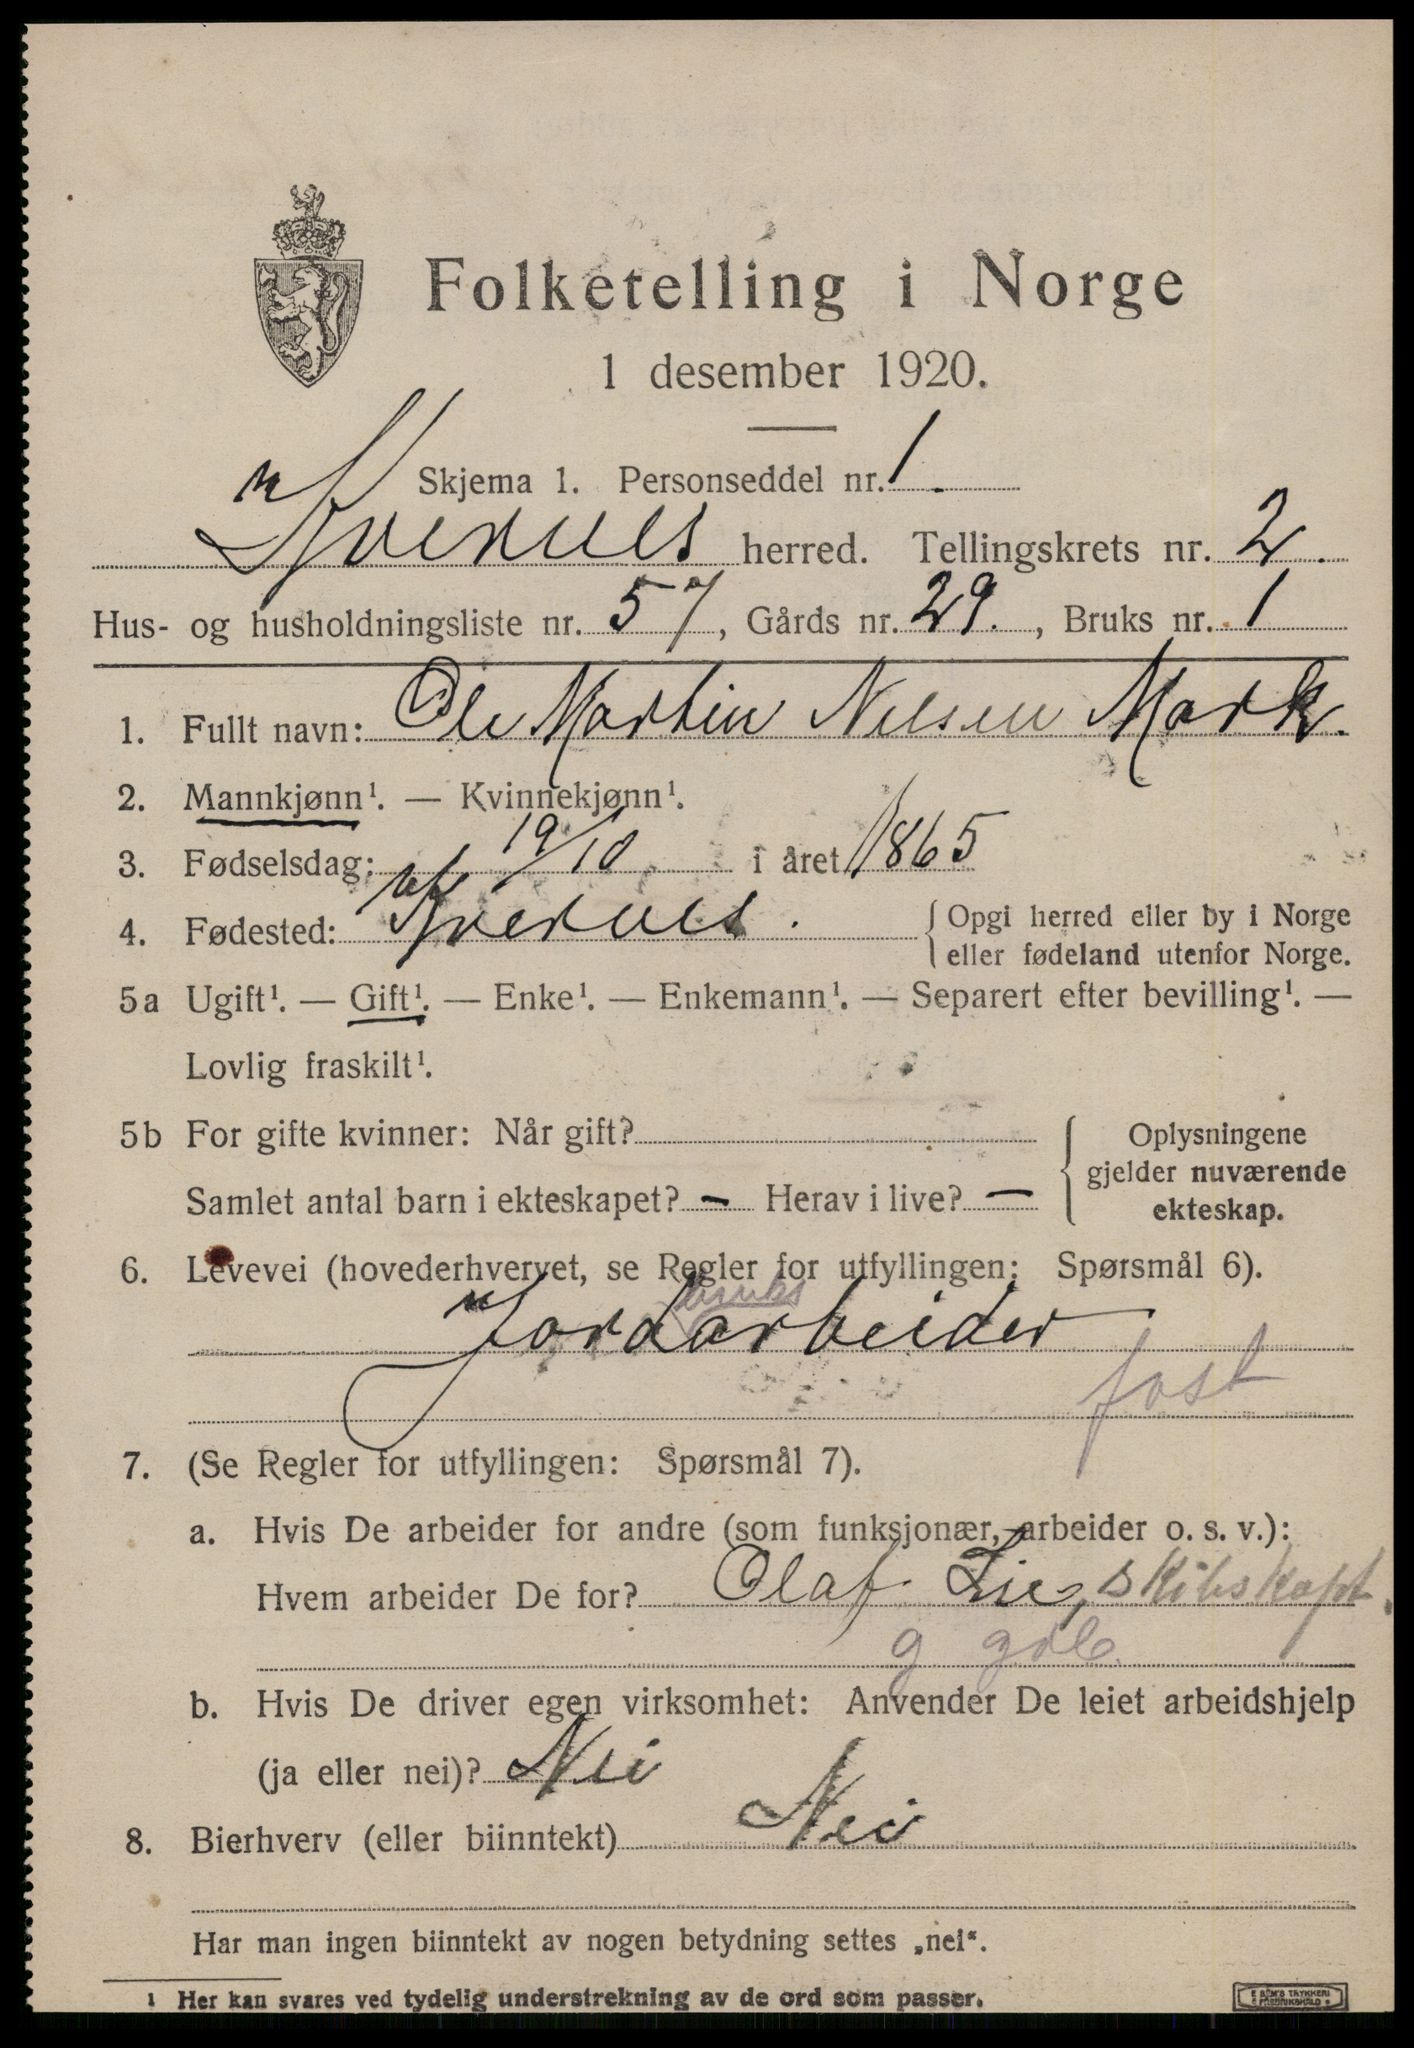 Folketelling i Norge
1 desember 1920.
Skjema 1. Personseddel nr. 1.
Kvernes herred. Tellingskrets nr. 2.
Hus- og husholdningsliste nr. 57, Gårds nr. 29., Bruks nr. 1
1. Fullt navn: Ole Martin Nilsen Mork.
2. Mannkjønn¹. — Kvinnekjønn¹.
3. Fødselsdag: 19/10 i året 1865
4. Fødested: Kvernes. { Opgi herred eller by i Norge
eller fødeland utenfor Norge.
5a Ugift¹. — Gift¹. — Enke¹. — Enkemann¹. — Separert efter bevilling¹. —
Lovlig fraskilt¹.
5b For gifte kvinner: Når gift? { Oplysningene
gjelder nuværende
Samlet antal barn i ekteskapet? — Herav i live? —
ekteskap.
6. Levevei (hovederhvervet, se Regler for utfyllingen: Spørsmål 6).
bruks
Jordarbeider
fast
7. (Se Regler for utfyllingen: Spørsmål 7).
a. Hvis De arbeider for andre (som funksjonær, arbeider o. s. v.):
Hvem arbeider De for? Olaf Lie, skibskapt.
g gdb.
b. Hvis De driver egen virksomhet: Anvender De leiet arbeidshjelp
(ja eller nei)? Nei
8. Bierhverv (eller biinntekt) Nei
Har man ingen biinntekt av nogen betydning settes „nei“.
1 Her kan svares ved tydelig understrekning av de ord som passer.